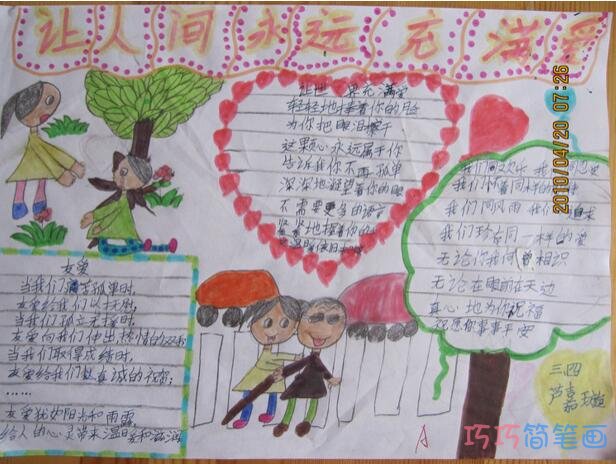 让人间永远充满爱
让世 界充满爱
轻轻地捧着你的脸
为你把眼泪擦干
这颗心永远属于你
告诉我你不再孤单
深深地凝望着你的眼
不需要更多的语言
紧紧地握着你的
我们 欢乐 我们
我们怀着同样的
我们同风雨 我们
我们珍 同一样的爱
无论你我何 相识
无论在眼前在天边
真心地为你祝福
祝愿你事事平安
友爱
当我们 孤单时,
友爱给我们以抚慰;
当我们孤立无援时,
友爱向我们伸出热情的双
当我们取得成绩时,
友爱给我们以真诚的祝贺;
……
友爱犹如阳光和雨露,
给人的心灵带来温暖和滋润
三四
芦嘉
A
2010/04/20 07:26
巧巧简笔画